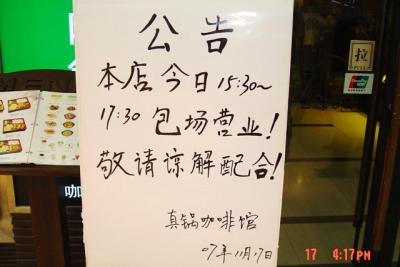 公告
本店今日15:30~
17:30包场营业！
敬请谅解配合！
真锅咖啡馆
07年11月17日
拉
PULL
咖
17 4:17PM